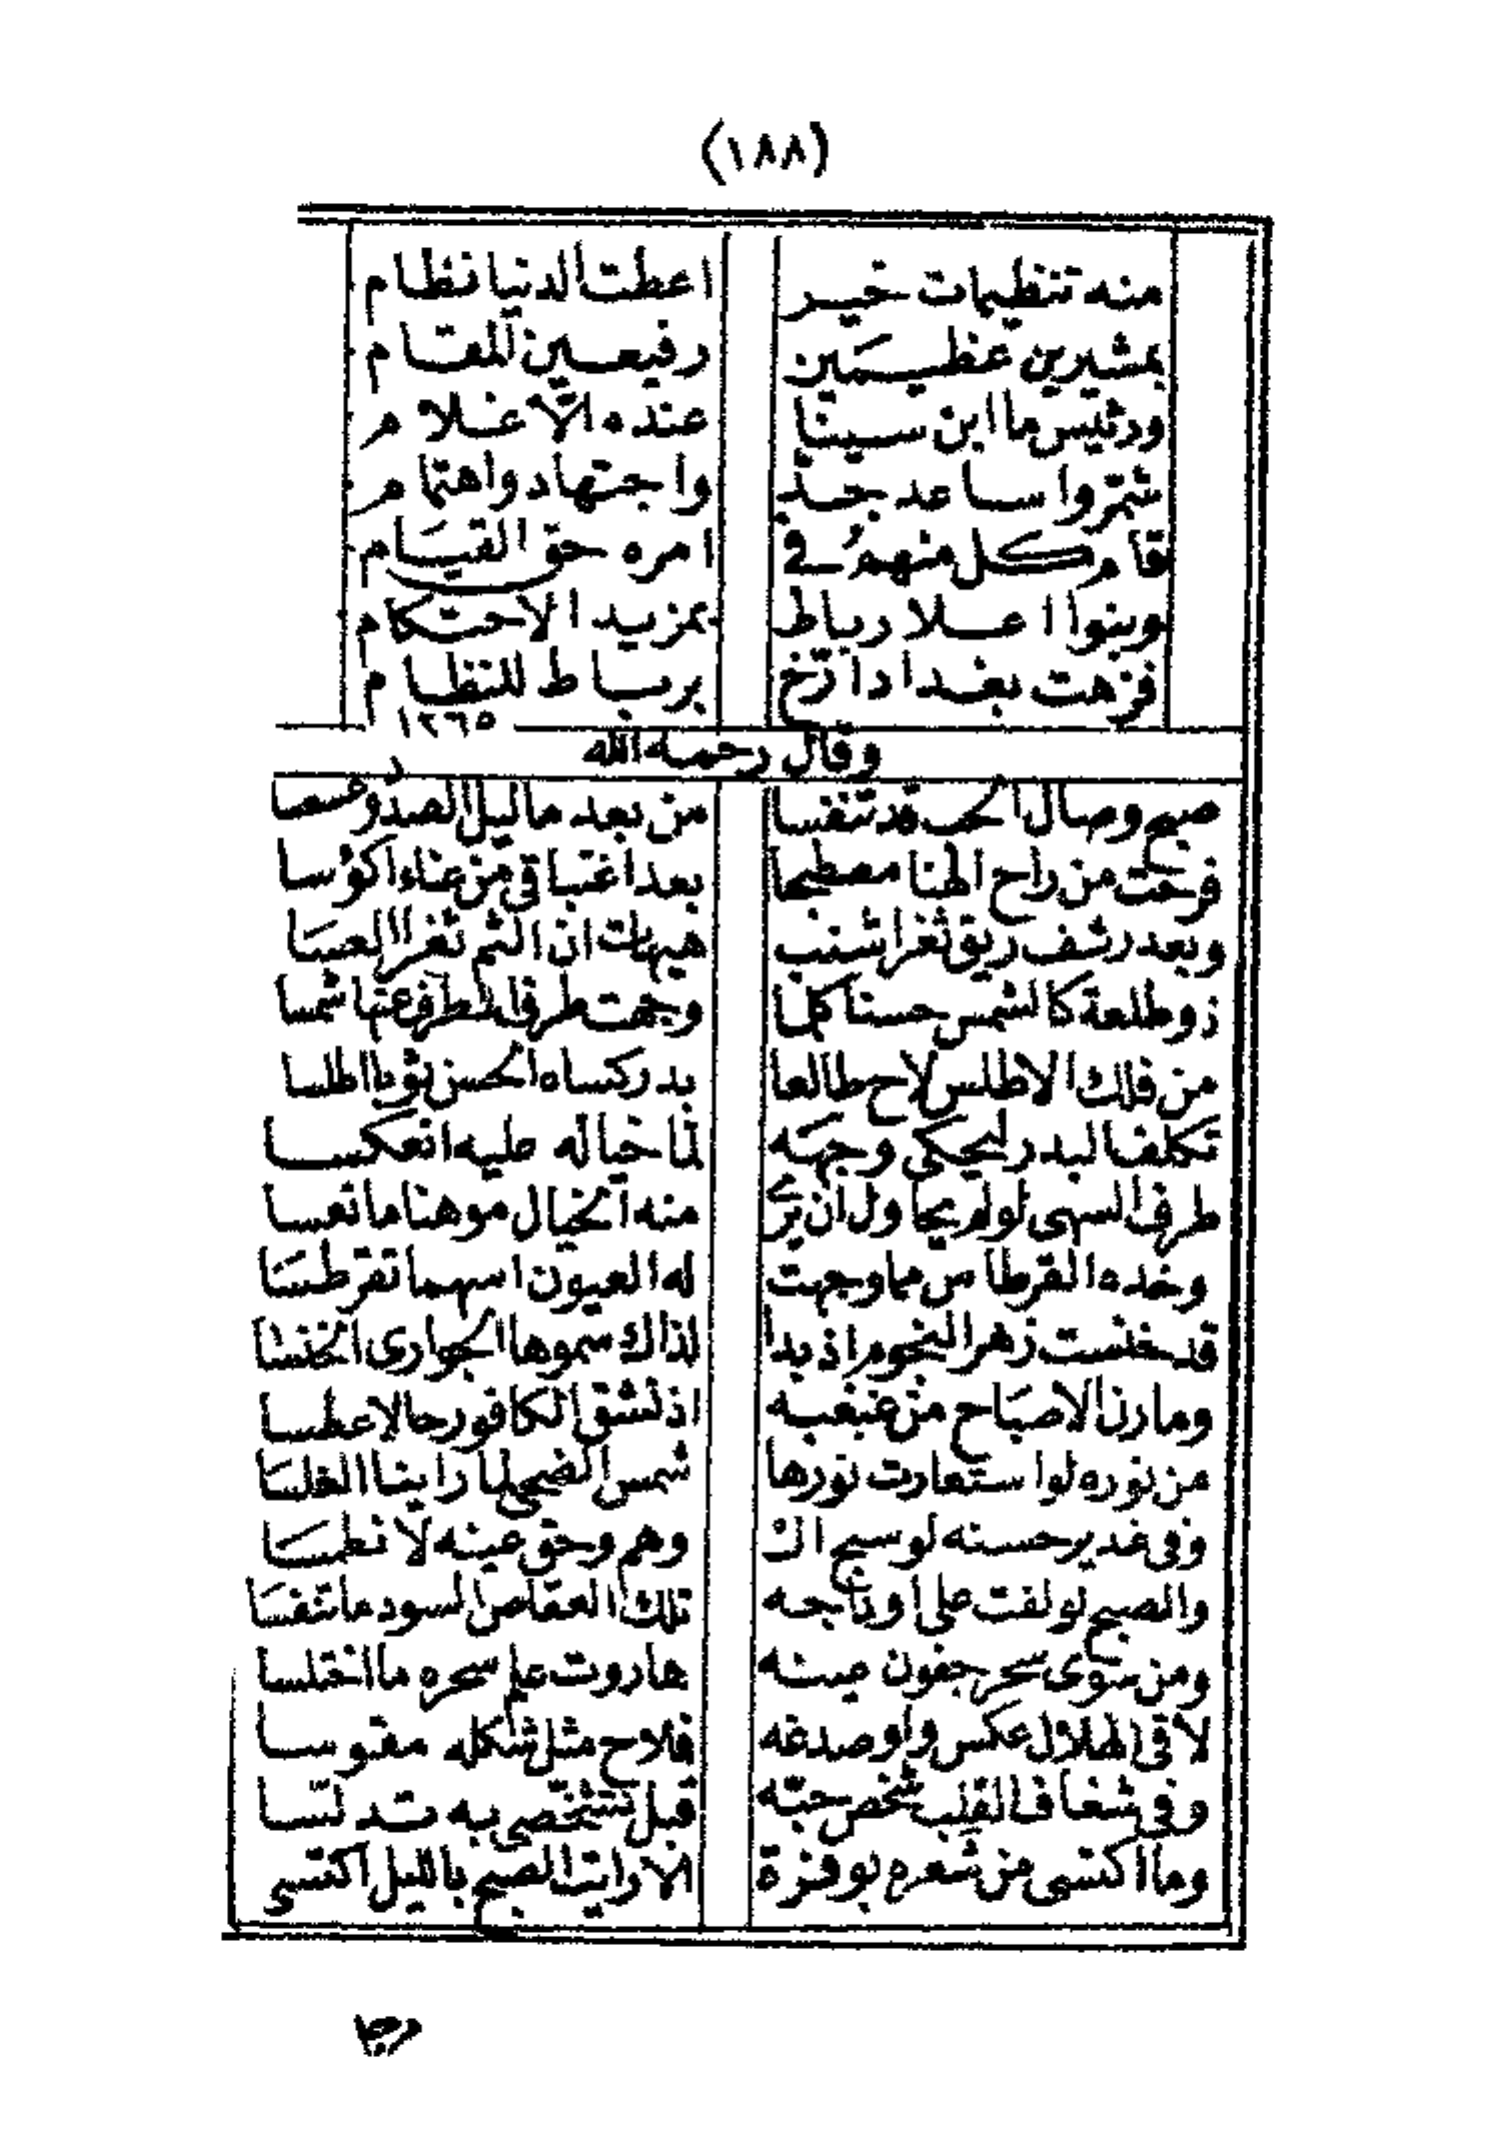 (١٨٨)
منه تنظيمات خير اعطت الدنيا نظام
بمشيرين عظيمين رفيعين المقام
ورئيس ما ابن سينا عنده الا غلام
شمّروا ساعد جدّ واجتهاد واهتمام
قام كل منهم في امره حق القيام
وبنوا اعلا رباط بمزيد الاحتكام
فزهت بغداد ارّخ برباط للنظام
١٢٦٥
وقال رحمه الله
صبح وصال الحب قد تنفسا من بعد ما ليل الصدود عسعسا
فرحت من راح الهنا مصطبحا بعد اغتباقي من عناء اكؤسا
وبعد رشف ريق ثغر اشنب هيهات ان الثم ثغر العسا
ذو طلعة كالشمس حسنا كلما وجهت طرفا للطرف عنها شمسا
من فلك الاطلس لاح طالعا بدر كساه الحسن ثوبا اطلسا
تكلف البدر ليحكي وجهه لما خياله عليه انعكسا
طرف السهى لو لم يحاول ان يرى منه الخيال موهنا ما نعسا
وخده القرطاس مما وجهت له العيون اسهما تقرطسا
قد خنست زهر النجوم اذ بدا لذاك سموها الجواري الخنسا
ومارن الاصباح من غبغبه اذ نشق الكافور حالا عطسا
من نوره لو استعارت نورها شمس الضحى لما راينا الغلسا
وفي غدير حسنه لو سبح الـ وهم وحق عينه لا نطمسا
والصبح لو لفت على اوداجه تلك العقاص السود ما تنفسا
ومن سوى سحر جفون عينه هاروت علم سحره ما اختلسا
لاقى الهلال عكس واو صدغه فلاح مثل شكله مقوسا
وفي شغاف القلب شخص حبّه قبل تشخصي به تدلّسا
وما اكتسى من شعره بوفرة الا رايت الصبح بالليل اكتسى